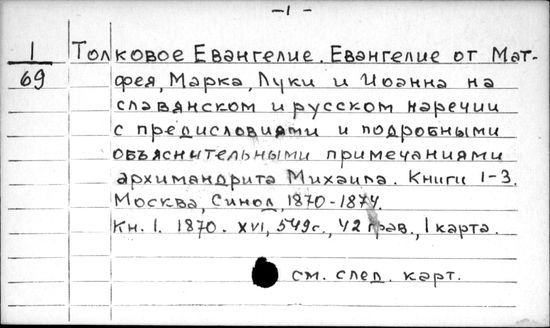 -1-
1 Толковое Евангелие. Евангелие от Мат-
69 фея, Марка, Луки и Иоанна на
славянском и русском наречии
с предисловиями и подробными
объяснительными примечаниями
архимандрита Михаила. Книги 1-3.
Москва, Синод, 1870-1874.
Кн. 1. 1870. XVI, 549с., 42 грав., 1 карта.
см. след. карт.